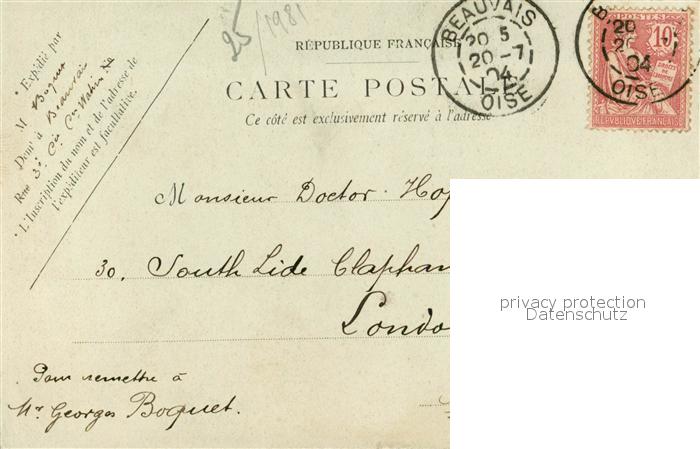 25/1981
RÉPUBLIQUE FRANÇAISE
CARTE POSTALE
Ce côté est exclusivement réservé à l'adresse
BEAUVAIS
20 5
20-7
04
OISE
B
20
04
OISE
POSTES
10
RÉPUBLIQUE FRANÇAISE
* Expédié par
M Boquet
Demt à Beauvais
Rue 3
* L'Inscription du nom et de l'adresse de
l'expéditeur est facultative.
Monsieur Doctor. Hop
30, South Side Clapham
Londo
Pour remettre à
Mr Georges Boquet.
privacy protection
Datenschutz